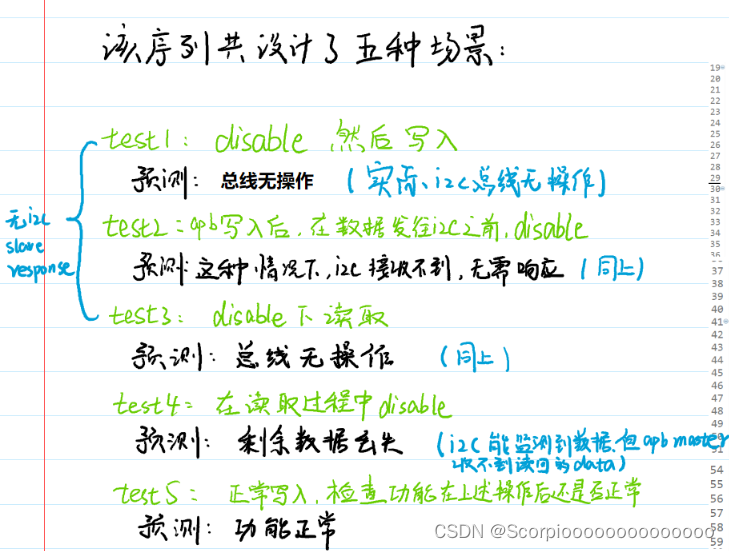 该序列共设计了五种场景：
test1： disable 然后写入
预测： 总线无操作 （实际、i2c总线无操作）
test2：apb写入后，在数据发往i2c之前，disable
无i2c slave response
预测：这种情况下，i2c接收不到，无需响应（同上）
test3： disable下读取
预测：总线无操作 （同上）
test4：在读取过程中disable
预测：剩余数据丢失 （i2c能监测到数据，但apb master
收不到读回的data）
test5： 正常写入，检查功能在上述操作后还是否正常
预测：功能正常
CSDN @Scorpiooooooooooooo
19
20
21
22
23
24
25
26
27
28
29
30
31
32
33
34
35
36
37
38
39
40
41
42
43
44
45
46
47
48
49
54
55
56
57
58
59